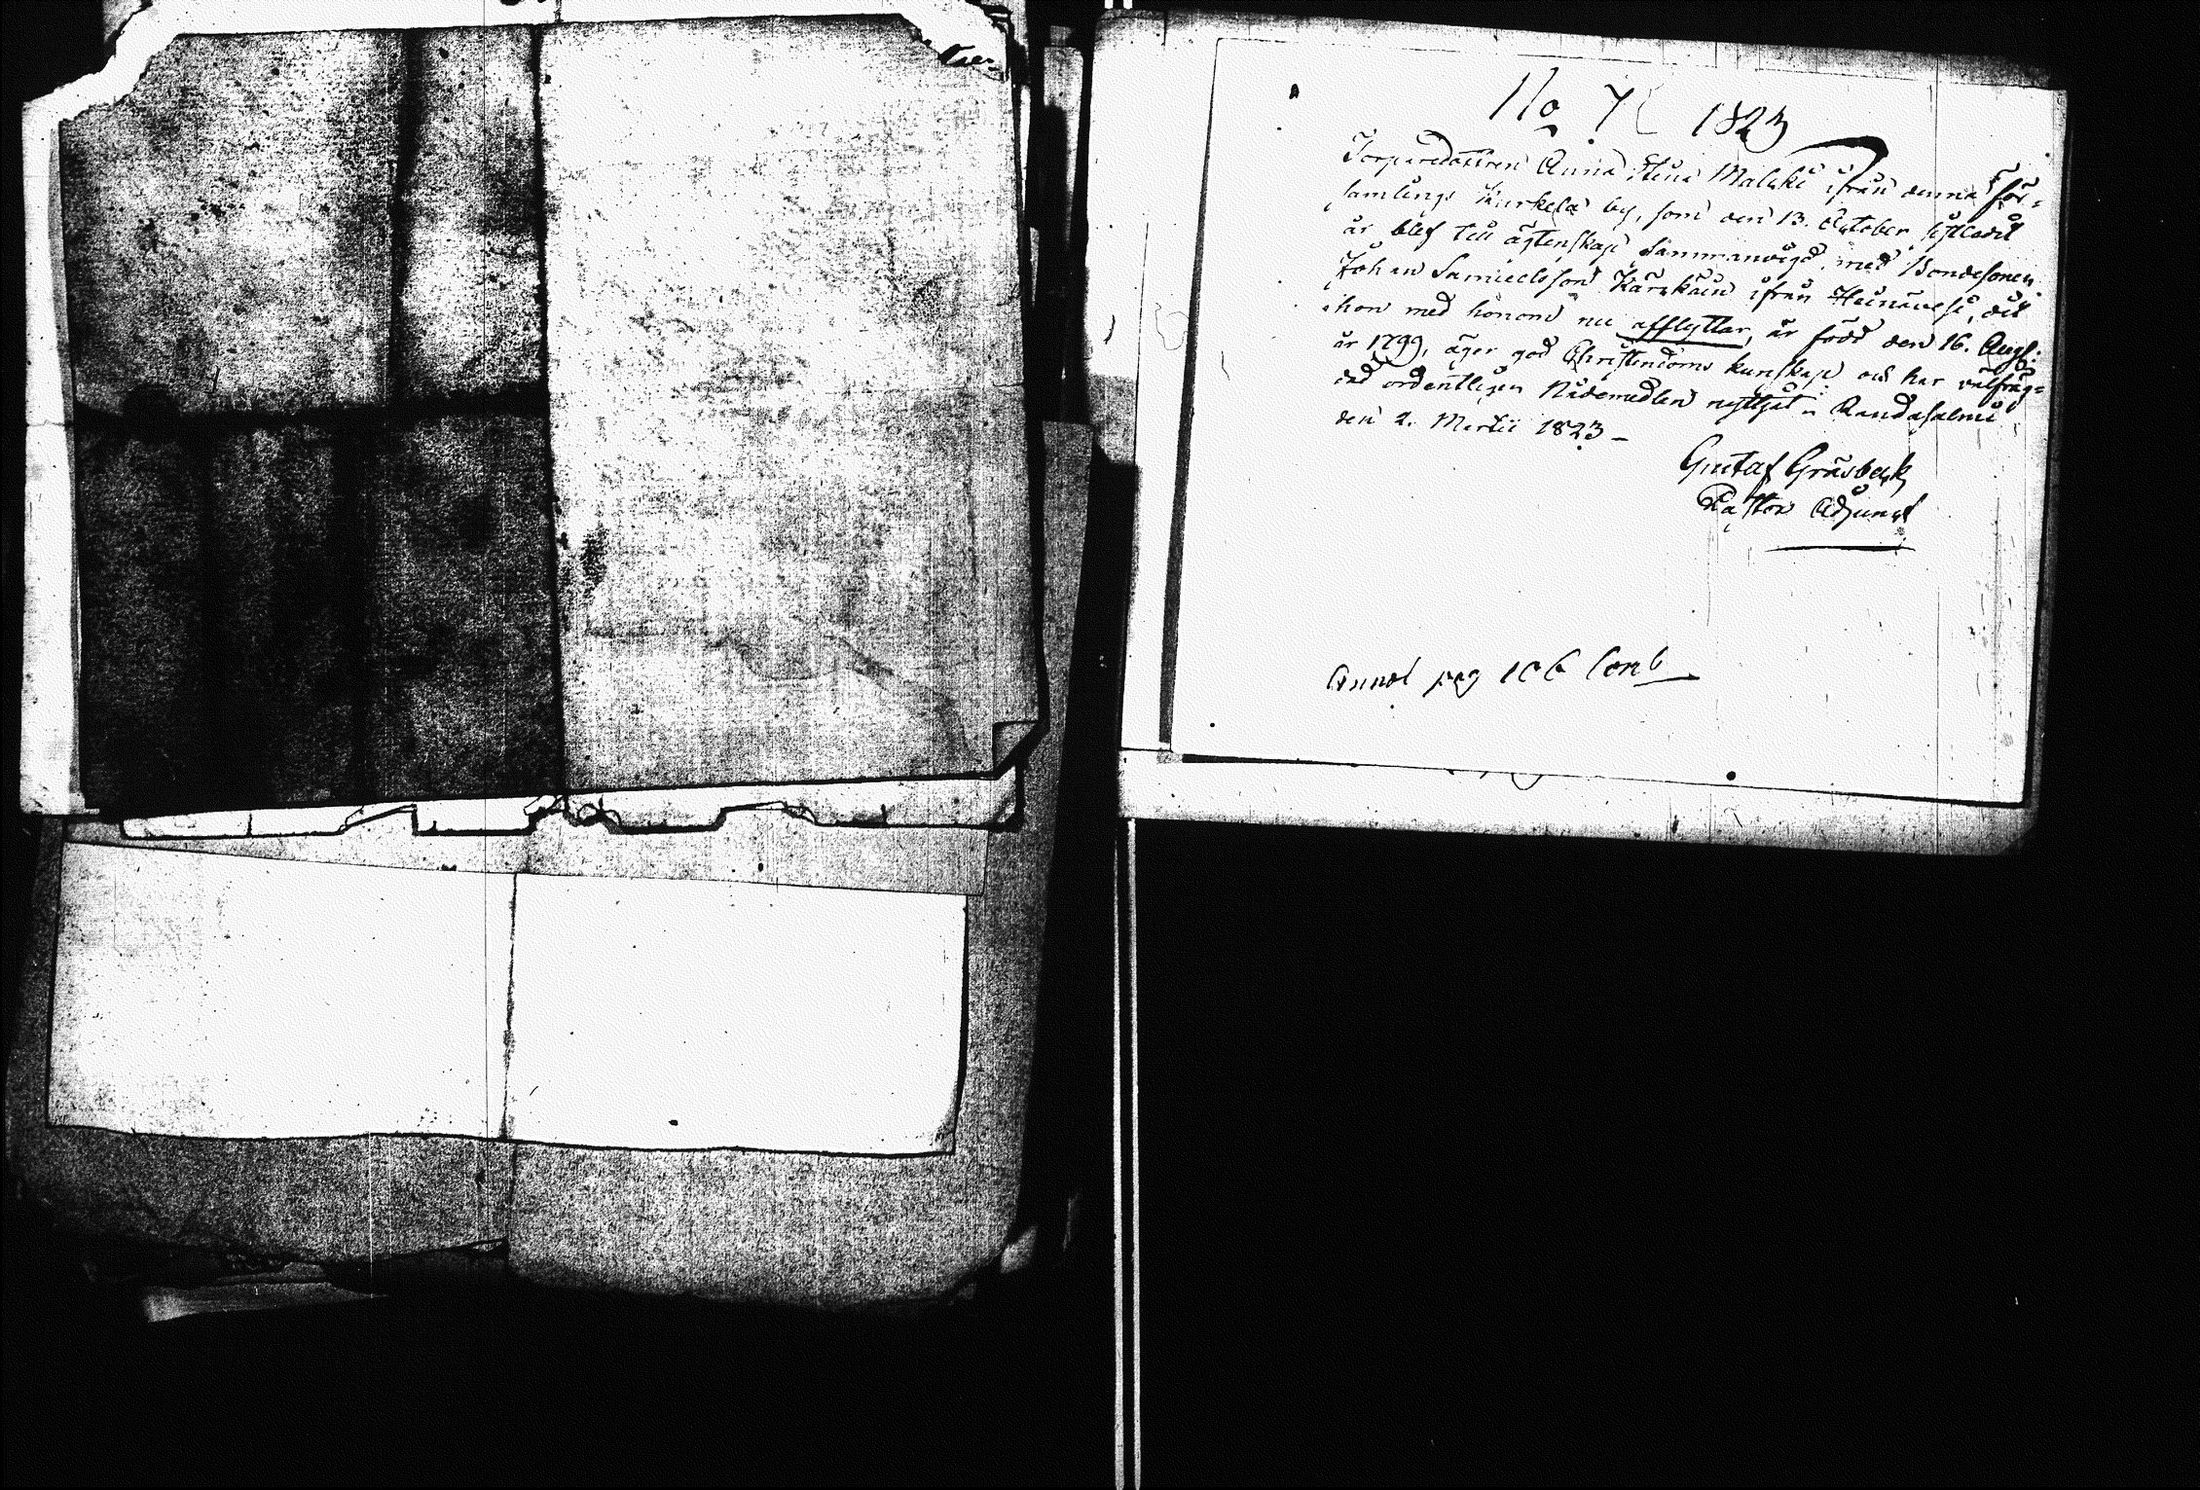 No 7 1823
Torparedottren Anna Stina Malski ifrån denna för=
samlings Kurkela by, som den 13. October sistledit
år blef till ägtenskap sammanvigd med Bondesonen
Johan Samuelsson Kärkäin ifrån Heinävesi, dit
hon med honom nu afflyttar, är född den 16. Aug:
år 1799, äger god Christendoms kunskap och har välfräg=
dad ordentligen Nådemedlen nyttjat. Randasalmi
den 2. Martii 1823 –
Gustaf Gråsbeck
Pastors Adjunct
Annot pag 106 Comb